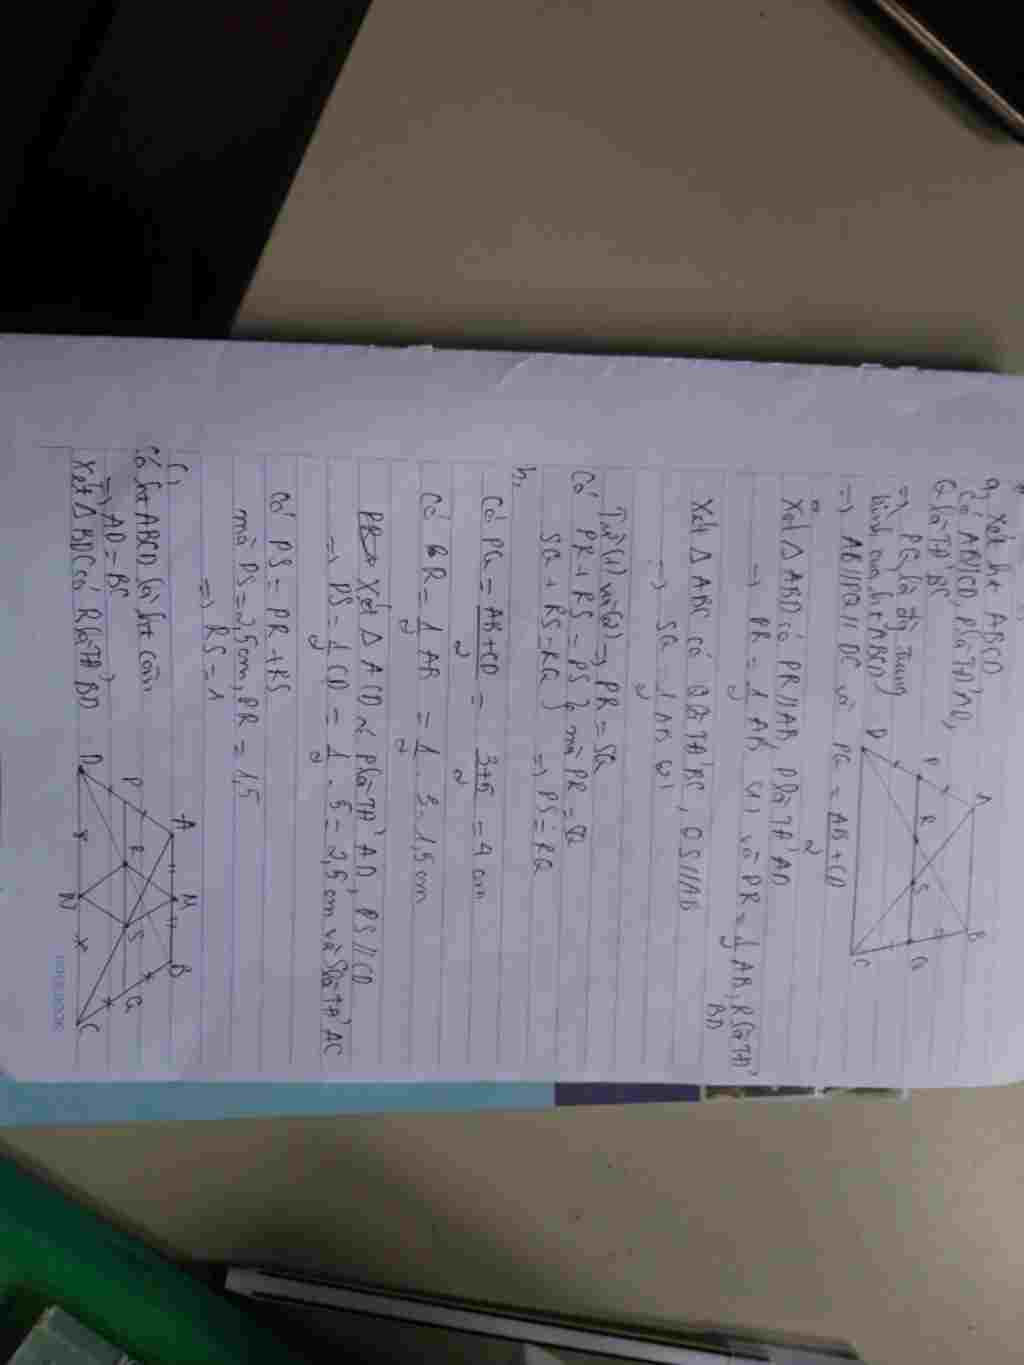 a, Xét ht ABCD
Có AB//CD, P là TĐ AD,
Q là TĐ BC
=> PQ là đg trung
bình của ht ABCD
=> AB//PQ//DC và PQ = AB+CD
2
Xét Δ ABD có PR//AB, P là TĐ AD
=> PR = 1 AB (1) và PR = 1 AB, R là TĐ
2 2 BD
Xét Δ ABC có Q là TĐ BC, QS//AB
=> SQ = 1 AB (2)
2
Từ (1) và (2) => PR = SQ
Có PR + RS = PS } mà PR = SQ
SQ + RS = RQ => PS = RQ
b,
Có PQ = AB+CD = 3+5 = 4 cm
2 2
Có PR = 1 AB = 1 . 3 = 1,5 cm
2 2
Xét Δ ACD có P là TĐ AD, PS//CD
=> PS = 1 CD = 1 . 5 = 2,5 cm và S là TĐ AC
2 2
Có PS = PR + RS
mà PS = 2,5 cm, PR = 1,5
=> RS = 1
c,
Có ht ABCD là ht cân
=> AD = BC
Xét Δ BDC có R là TĐ BD
A
B
P
R
S
Q
D
C
A
M
B
P
R
S
Q
D
N
C
NOTEBOOK